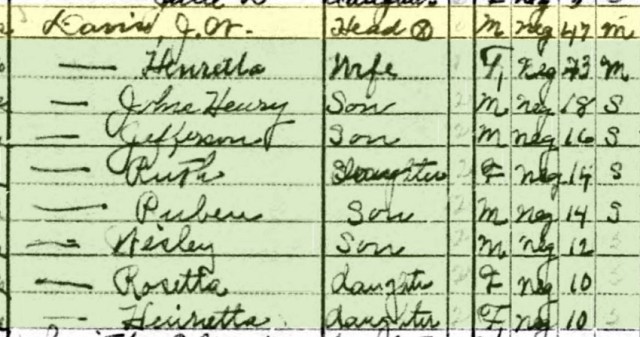 Davis, J. W. Head M Neg 47 M
— Henrietta Wife F Neg 43 M
— John Henry Son M Neg 18 S
— Jefferson Son M Neg 16 S
— Ruth Daughter F Neg 14 S
— Ruben Son M Neg 14 S
— Wesley Son M Neg 12 S
— Rosetta daughter F Neg 10
— Henrietta daughter F Neg 10